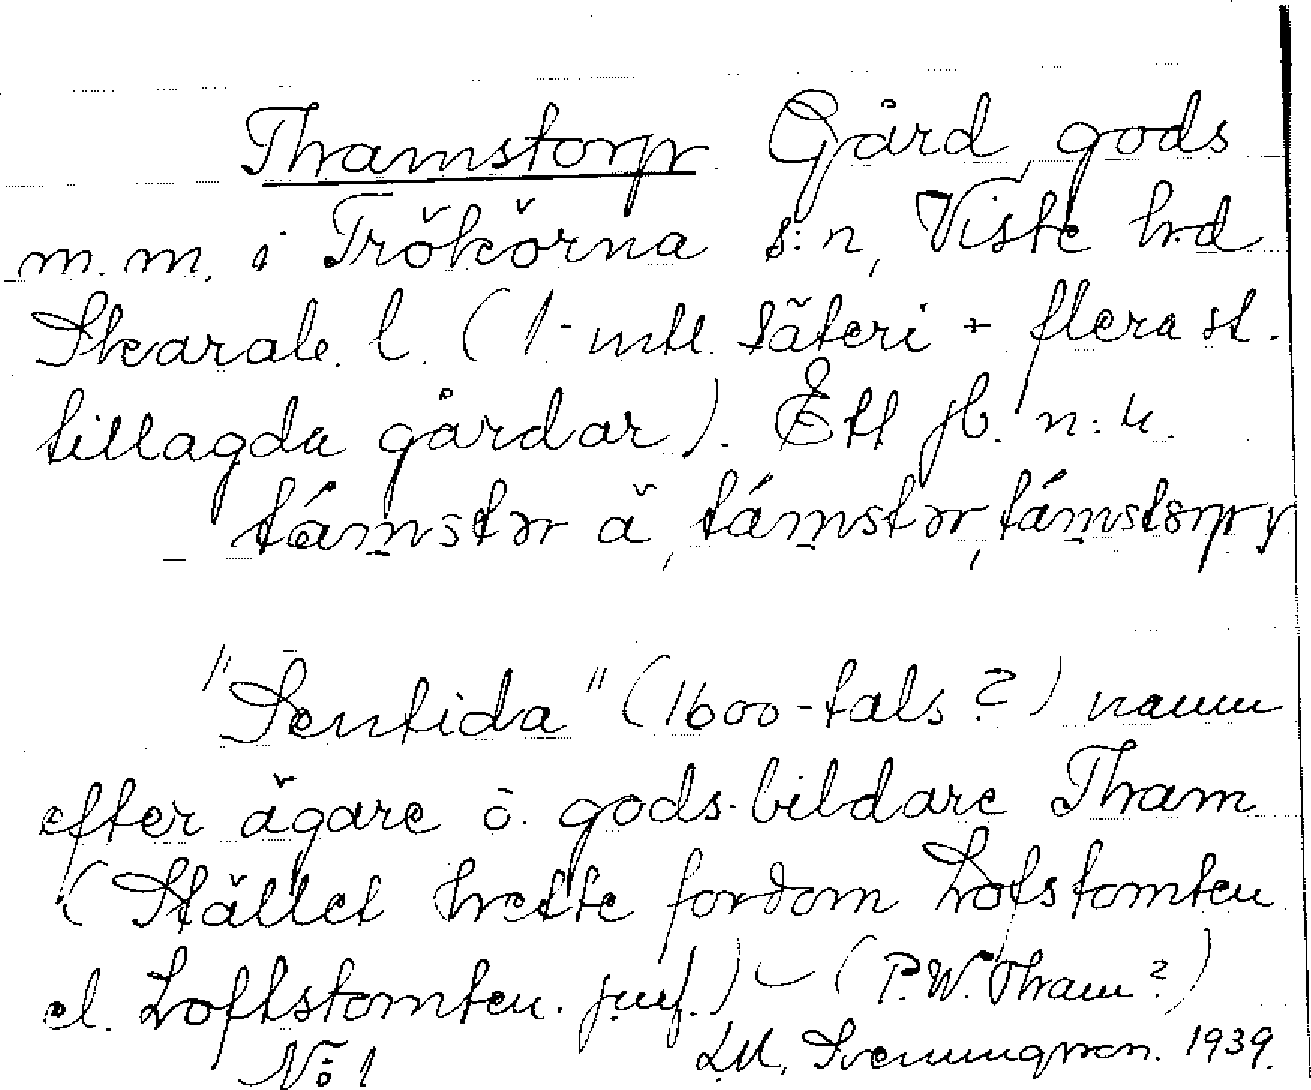 Thamstorp Gård, gods
m.m. i Trökörna s:n, Viste hd
Skarab. l. (1 mtl. säteri + flera st.
tillagda gårdar). Ett jb. n:r.
támstər ä, támstər, támstorp
"Sentida" (1600-tals?) namn
efter ägare o. gods-bildare Tham
(Stället hette fordom Lofstomten
el. Loftstomten. jmf.) – (P.W. Tham?)
No 1 LM. Svenungsson. 1939.